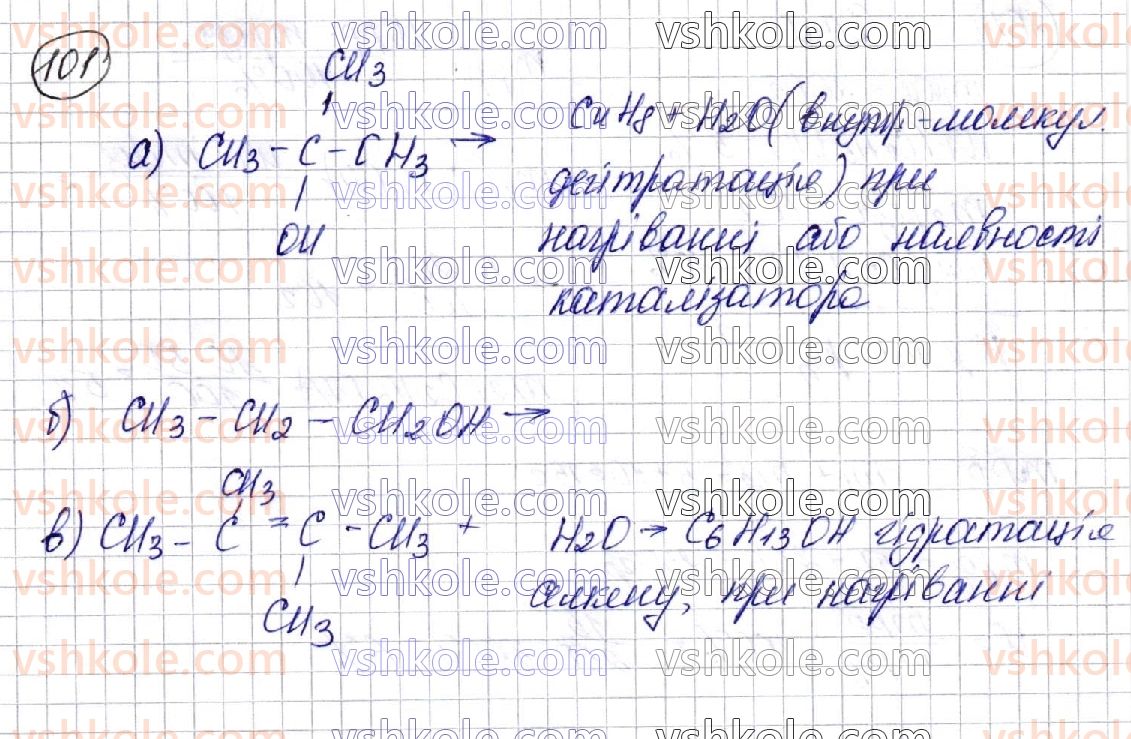 101
CH3
а) CH3 - C - CH3 → C4H8 + H2O (внутр-молекул.
OH
дегітратація) при
нагріванні або наявності
каталізатора
б) CH3 - CH2 - CH2OH →
CH3
в) CH3 - C = C - CH3 + H2O → C6H13OH гідратація
CH3
алкену, при нагріванні